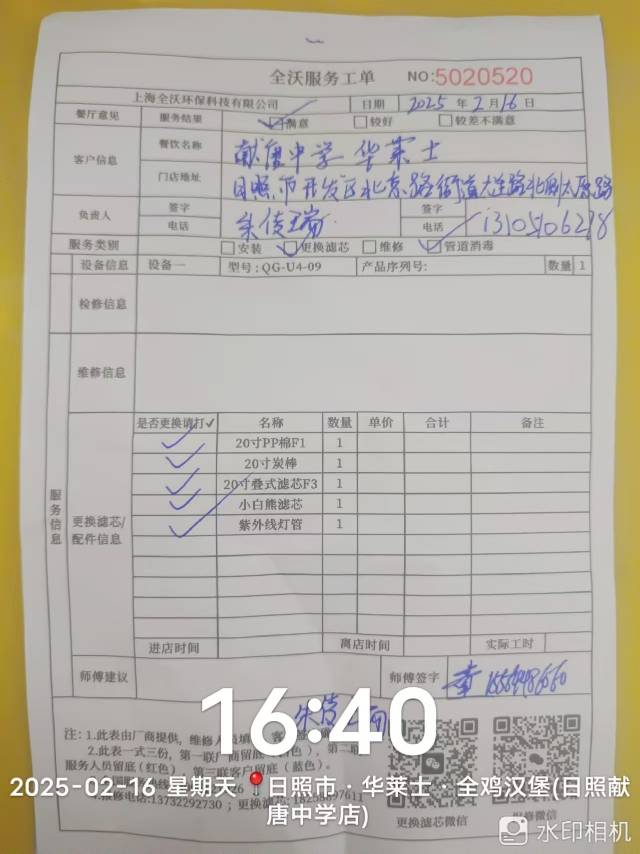 全沃服务工单 NO:5020520
上海全沃环保科技有限公司 日期 2025 年 2 月 16 日
餐厅意见 服务结果 满意 较好 较差不满意
客户信息 餐饮名称 献唐中学 华莱士
门店地址 日照市开发区北京路街道大连路北侧太原路
负责人 签字 电话 朱传瑞 签字 电话
服务类别 安装 更换滤芯 维修 管道消毒
设备信息 设备一 型号:QG-U4-09 产品序列号: 数量 1
检修信息
维修信息
服务信息
更换滤芯/配件信息
是否更换请打✓ 名称 数量 单价 合计 备注
✓ 20寸PP棉F1 1
✓ 20寸炭棒 1
✓ 20寸叠式滤芯F3 1
✓ 小白熊滤芯 1
✓ 紫外线灯管 1
进店时间 离店时间 实际工时
师傅建议 师傅签字
注: 1.此表由厂商提供, 维修人员填
2.此表一式三份, 第一联厂商留底
服务人员留底(红色) 第三联客户留底(蓝色)。
维修电话:13732292730; 更换滤芯:18258897611
更换滤芯微信
16:40
2025-02-16 星期天 日照市·华莱士·全鸡汉堡(日照献唐中学店)
水印相机